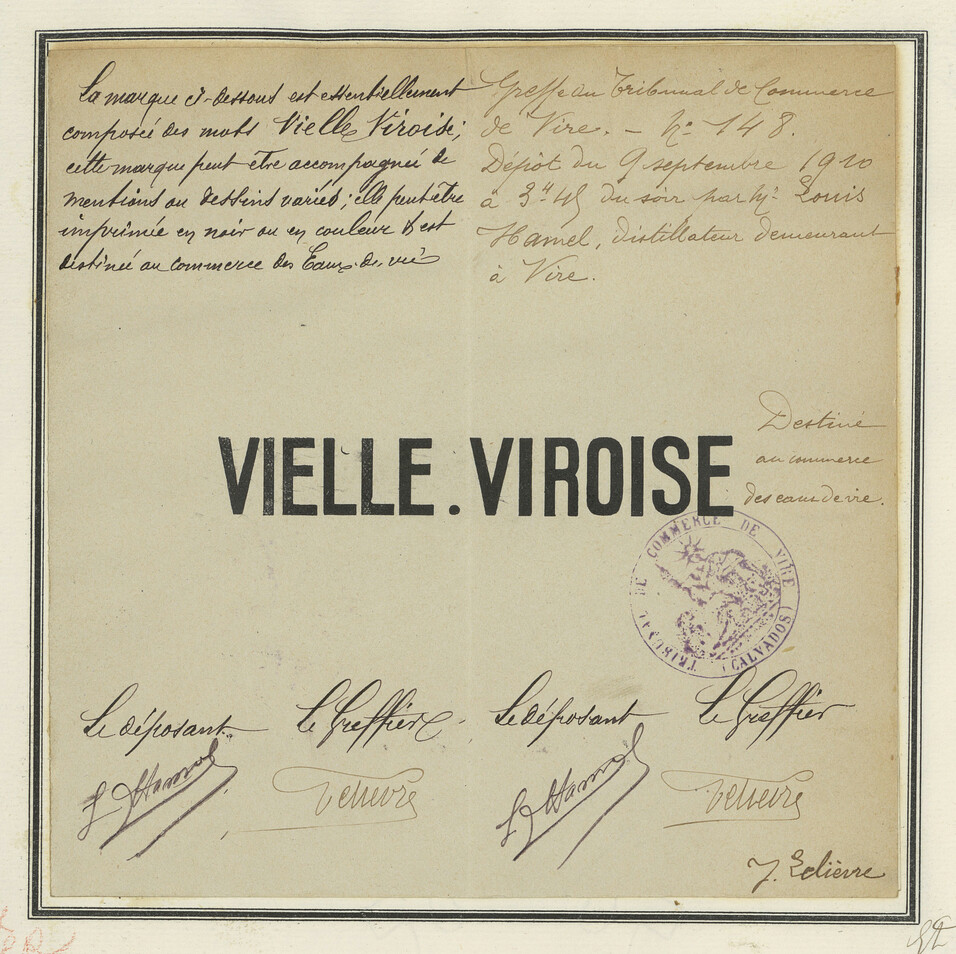 La marque ci-dessous est essentiellement
composée des mots Vielle Viroise;
cette marque peut être accompagnée de
mentions ou dessins variés; elle peut être
imprimée en noir ou en couleur & est
destinée au commerce des Eaux-de-vie
Greffe du Tribunal de Commerce
de Vire. - No 148.
Dépôt du 9 septembre 1910
à 3h 45 du soir par Mr Louis
Hamel, distillateur demeurant
à Vire.
Destiné
au commerce
des eaux de vie.
VIELLE.VIROISE
TRIBUNAL DE COMMERCE DE VIRE (CALVADOS)
Le déposant Le Greffier Le déposant Le Greffier
L Hamel L Hamel
J. Lelièvre